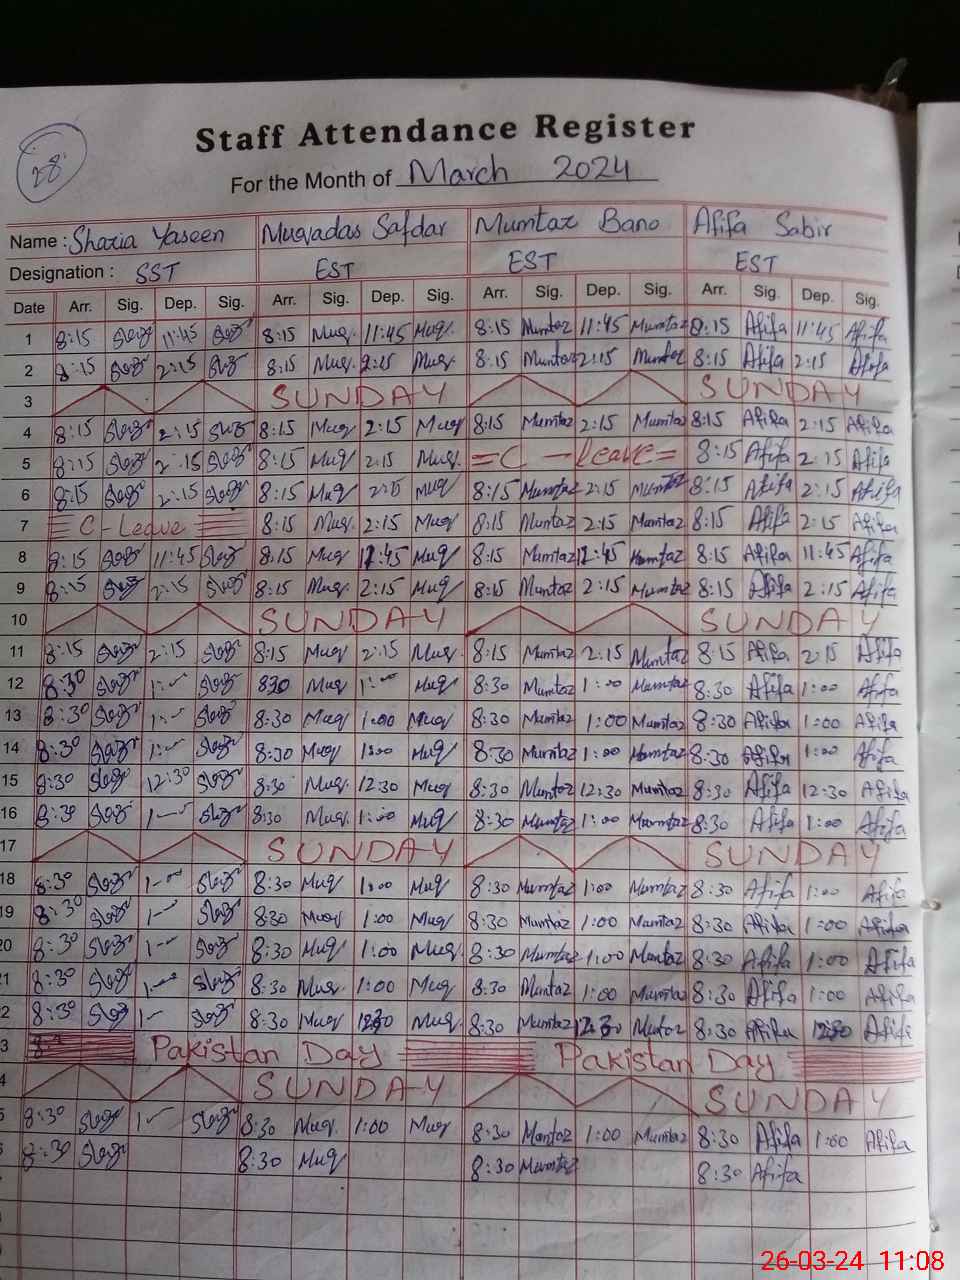 28
Staff Attendance Register
For the Month of March 2024
Name : Shazia Yaseen Muqadas Safdar Mumtaz Bano Afifa Sabir
Designation : SST EST EST EST
Date Arr. Sig. Dep. Sig. Arr. Sig. Dep. Sig. Arr. Sig. Dep. Sig. Arr. Sig. Dep. Sig.
1 8:15 11:45 8:15 Muq. 11:45 Muq. 8:15 Mumtaz 11:45 Mumtaz 8:15 Afifa 11:45 Afifa
2 8:15 2:15 8:15 Muq. 2:15 Muq. 8:15 Mumtaz 2:15 Mumtaz 8:15 Afifa 2:15 Afifa
3 SUNDAY SUNDAY
4 8:15 2:15 8:15 Muq 2:15 Muq 8:15 Mumtaz 2:15 Mumtaz 8:15 Afifa 2:15 Afifa
5 8:15 2:15 8:15 Muq 2:15 Muq. = C - leave = 8:15 Afifa 2:15 Afifa
6 8:15 2:15 8:15 Muq 2:15 Muq 8:15 Mumtaz 2:15 Mumtaz 8:15 Afifa 2:15 Afifa
7 C - Leave 8:15 Muq. 2:15 Muq 8:15 Mumtaz 2:15 Mumtaz 8:15 Afifa 2:15 Afifa
8 8:15 11:45 8:15 Muq :45 Muq 8:15 Mumtaz :45 Mumtaz 8:15 Afifa 11:45 Afifa
9 8:15 2:15 8:15 Muq. 2:15 Muq 8:15 Mumtaz 2:15 Mumtaz 8:15 Afifa 2:15 Afifa
10 SUNDAY SUNDAY
11 8:15 2:15 8:15 Muq 2:15 Muq. 8:15 Mumtaz 2:15 Mumtaz 8:15 Afifa 2:15 Afifa
12 8:30 1:00 830 Muq 1:00 Muq 8:30 Mumtaz 1:00 Mumtaz 8:30 Afifa 1:00 Afifa
13 8:30 1:00 8:30 Muq 1:00 Muq 8:30 Mumtaz 1:00 Mumtaz 8:30 Afifa 1:00 Afifa
14 8:30 1:00 8:30 Muq 1:00 Muq 8:30 Mumtaz 1:00 Mumtaz 8:30 Afifa 1:00 Afifa
15 8:30 12:30 8:30 Muq. 12:30 Muq 8:30 Mumtaz 12:30 Mumtaz 8:30 Afifa 12:30 Afifa
16 8:30 8:30 Muq. 1:00 Muq 8:30 Mumtaz 1:00 Mumtaz 8:30 Afifa 1:00 Afifa
17 SUNDAY SUNDAY
18 8:30 1-00 8:30 Muq 1:00 Muq 8:30 Mumtaz 1:00 Mumtaz 8:30 Afifa 1:00 Afifa
19 8:30 8:30 Muq 1:00 Muq 8:30 Mumtaz 1:00 Mumtaz 8:30 Afifa 1:00 Afifa
20 8:30 8:30 Muq 1:00 Muq. 8:30 Mumtaz 1:00 Mumtaz 8:30 Afifa 1:00 Afifa
21 8:30 8:30 Muq. 1:00 Muq 8:30 Mumtaz 1:00 Mumtaz 8:30 Afifa 1:00 Afifa
22 8:30 8:30 Muq 1230 Muq. 8:30 Mumtaz 12:30 Mumtaz 8:30 Afifa 1230 Afifa
3 Pakistan Day Pakistan Day
4 SUNDAY SUNDAY
5 8:30 8:30 Muq. 1:00 Muq 8:30 Mumtaz 1:00 Mumtaz 8:30 Afifa 1:00 Afifa
8:30 8:30 Muq 8:30 Mumtaz 8:30 Afifa
26-03-24 11:08